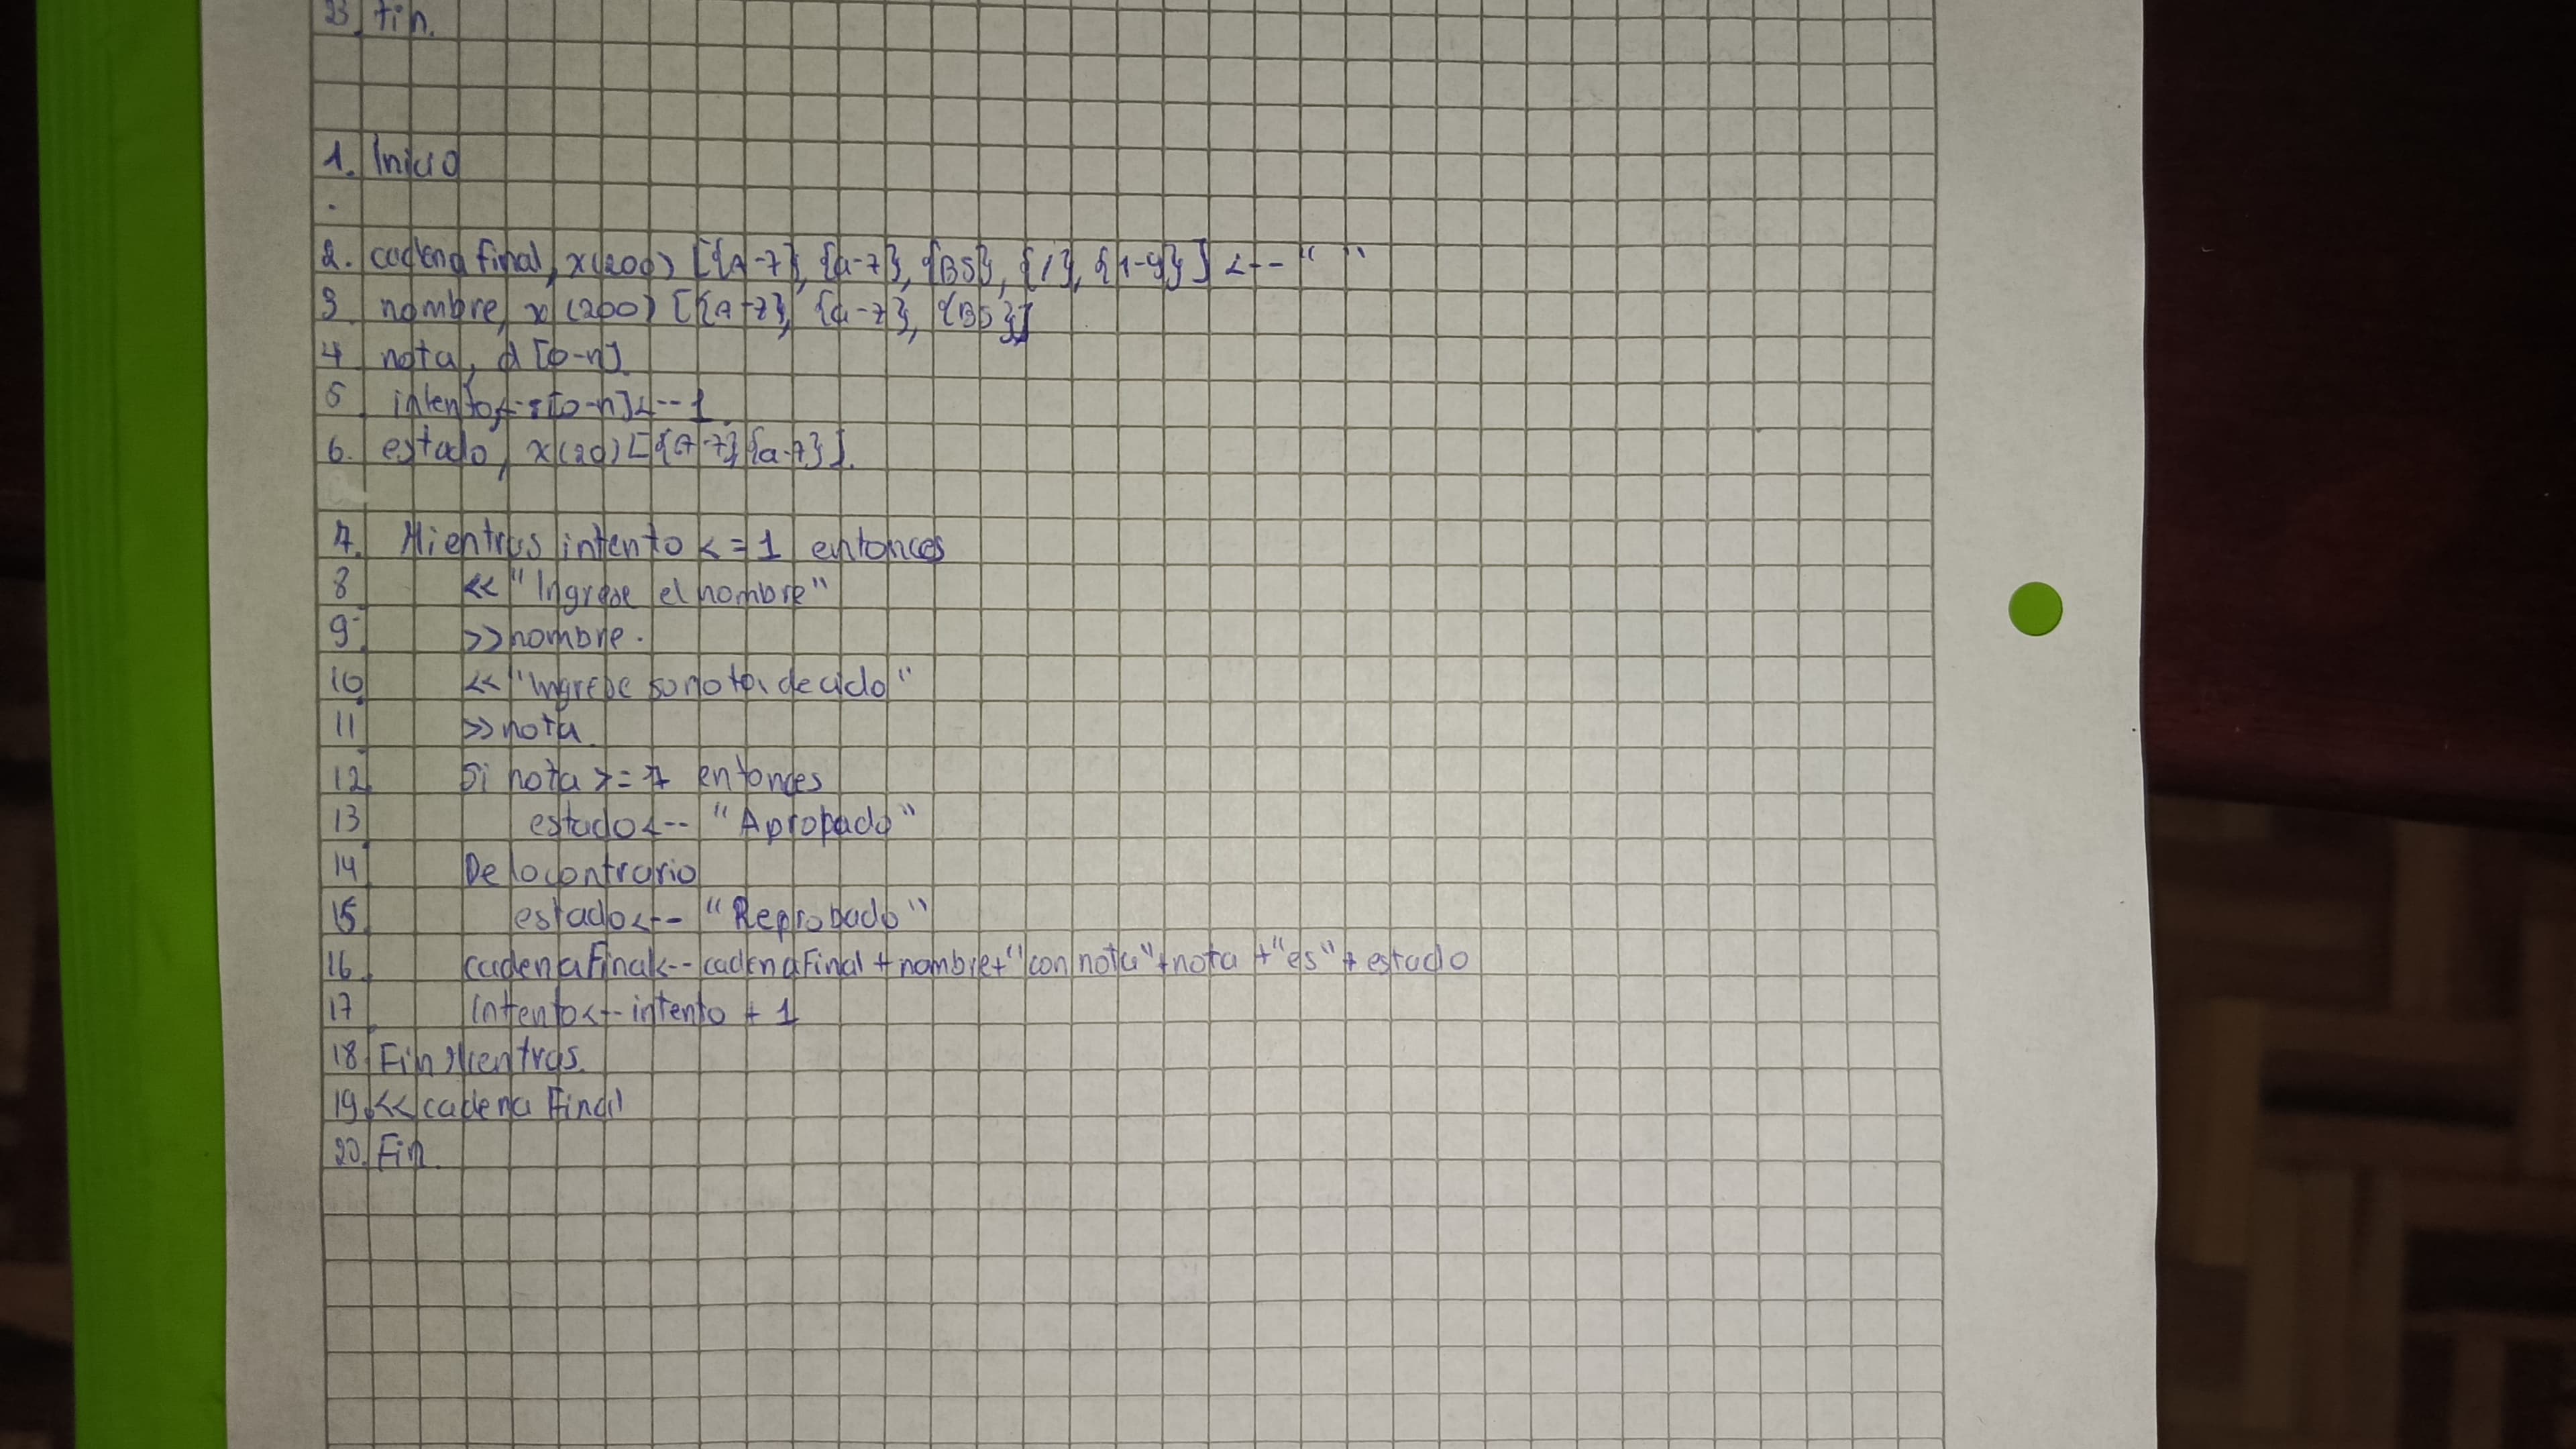 23. fin.
1. Inicio
2. cadena final, x(200) [{A-Z}, {a-z}, {BS}, {/}, {1-9}] <-- " "
3 nombre, x(200) [{A-Z}, {a-z}, {BS}]
4 nota, d [0-n].
5 intento, [0-n] <-- 1
6. estado, x(20) [{A-Z}{a-z}].
7. Mientras intento <= 1 entonces
8 << "Ingrese el nombre"
9. >> nombre.
10. << "Ingrese su nota de ciclo"
11 >> nota
12. Si nota >= 7 entonces
13 estado <-- "Aprobado"
14 De lo contrario
15 estado <-- "Reprobado"
16. cadenaFinal <-- cadenaFinal + nombre + "con nota" + nota + "es" + estado
17 intento <-- intento + 1
18. Fin Mientras.
19. << cadena Final
20. Fin.